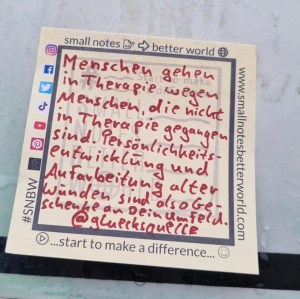 small notes ➪ better world
Menschen gehen
in Therapie wegen
Menschen, die nicht
in Therapie gegangen
sind. Persönlichkeits-
entwicklung und
Aufarbeitung alter
Wunden sind also Ge-
schenke an Dein Umfeld.
@gluecksquelle
...start to make a difference...
#SNBW
www.smallnotesbetterworld.com